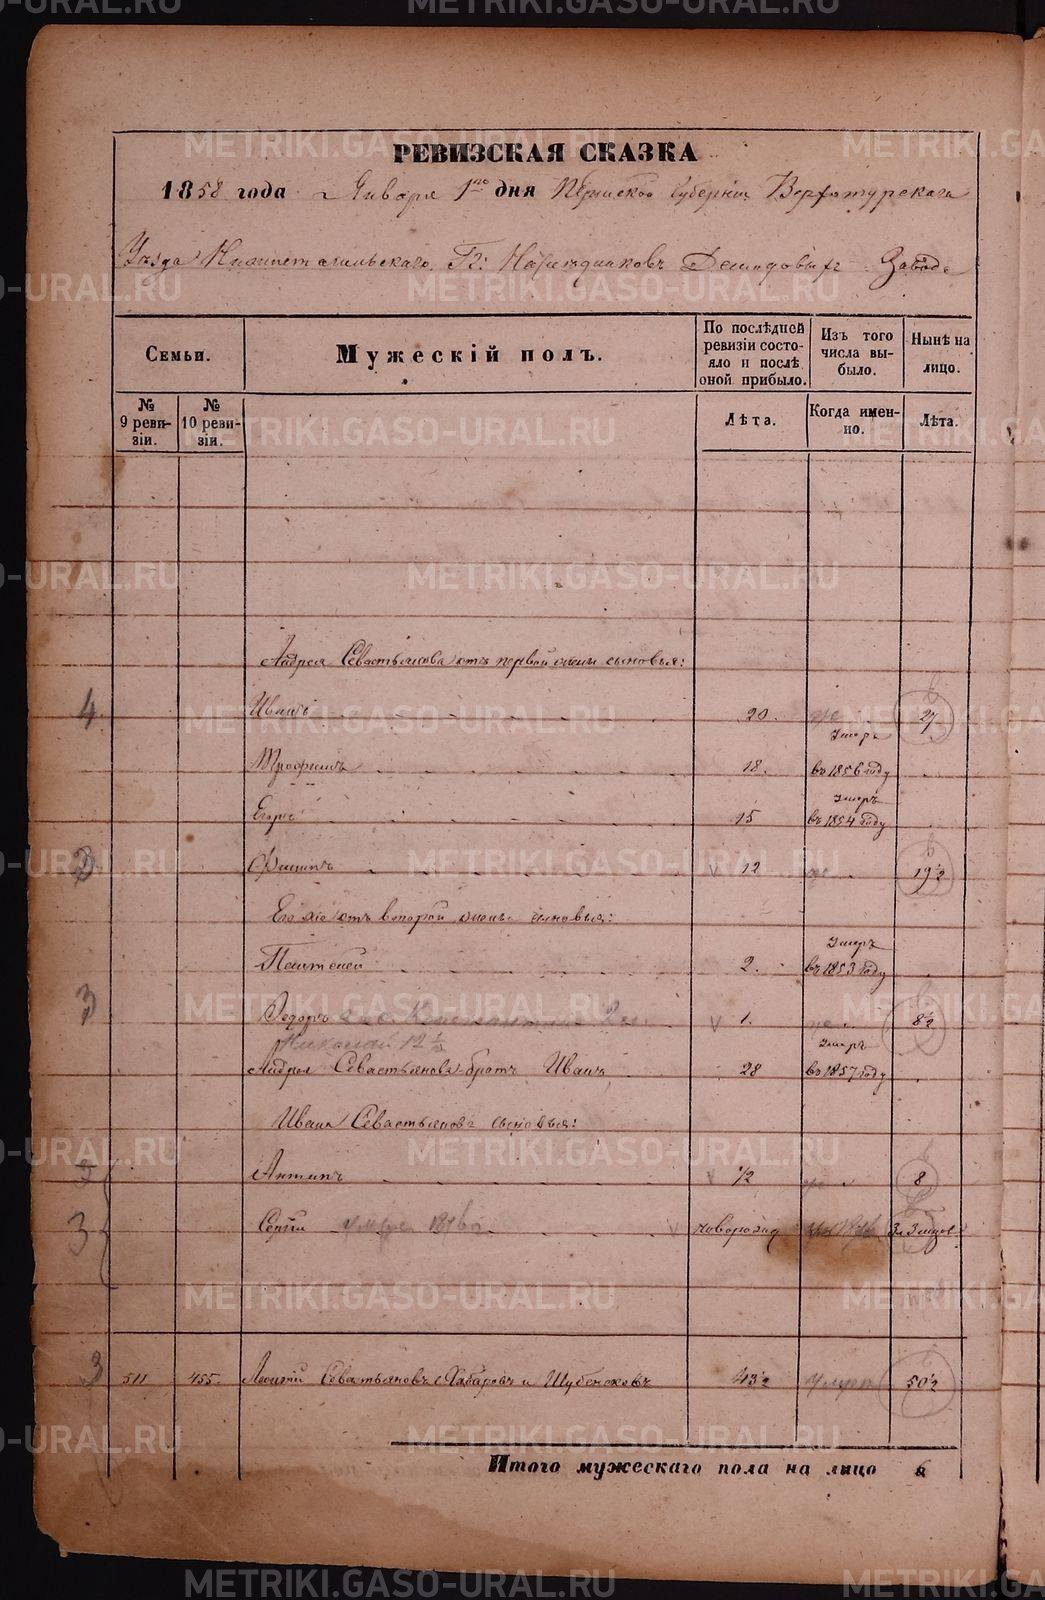 METRIKI.GASO-URAL.RU
РЕВИЗСКАЯ СКАЗКА
1858 года Января 1го дня Пермской Губернии Верхотурскаго
Уѣзда Нижнетагильскаго Гг: Наслѣдниковъ Демидовыхъ Завода
Семьи.
Мужескій полъ.
По послѣдней ревизіи состояло и послѣ оной прибыло.
Изъ того числа выбыло.
Нынѣ на лицо.
№ 9 ревизіи.
№ 10 ревизіи.
Лѣта.
Когда именно.
Лѣта.
Андрея Севастьянова отъ первой жены сыновья:
4 Иванъ 20. 27
Трофимъ 18. Умеръ въ 1856 году
Егоръ 15 Умеръ въ 1854 году
3 Филипъ 12 19½
Его же отъ второй жены сыновья:
Пантелей 2. Умеръ въ 1853 году
3 Федоръ 1. 8½
Николай 12½
Андрея Севастьянова братъ Иванъ 28 Умеръ въ 1857 году
Ивана Севастьянова сыновья:
Антипъ ½ 8
3 Сергій умеръ новорожд
3 511 455. Леонтій Севастьяновъ Хабаровъ и Шубенковъ 43½ умеръ 50½
Итого мужескаго пола на лицо 6